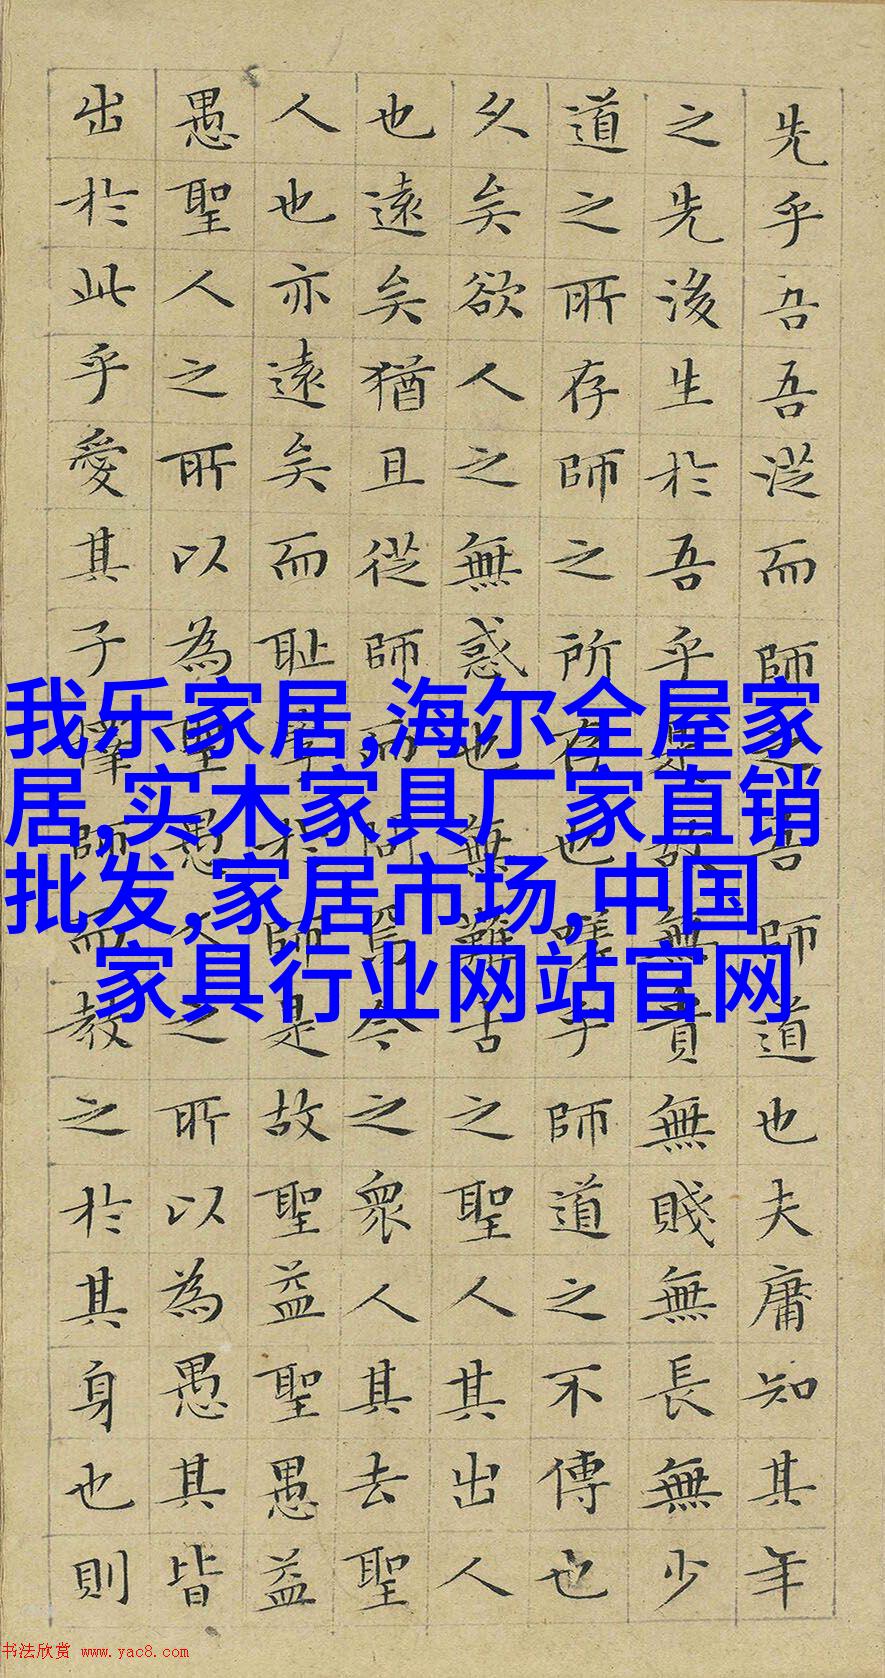 先乎吾吾從而師之吾師道也夫庸知其年
之先後生於吾乎是故無貴無賤無長無少
道之所存師之所存也嗟乎師道之不傳也
久矣欲人之無惑也無難古之聖人其出人
也遠矣猶且從師而問焉今之衆人其去聖
人也亦遠矣而耻學於師是故聖益聖愚益
愚聖人之所以為聖愚人之所以為愚其皆
出於此乎愛其子擇師而教之於其身也則
我乐家居,海尔全屋家
居,实木家具厂家直销
批发,家居市场,中国
家具行业网站官网
书法欣赏 www.yac8.com